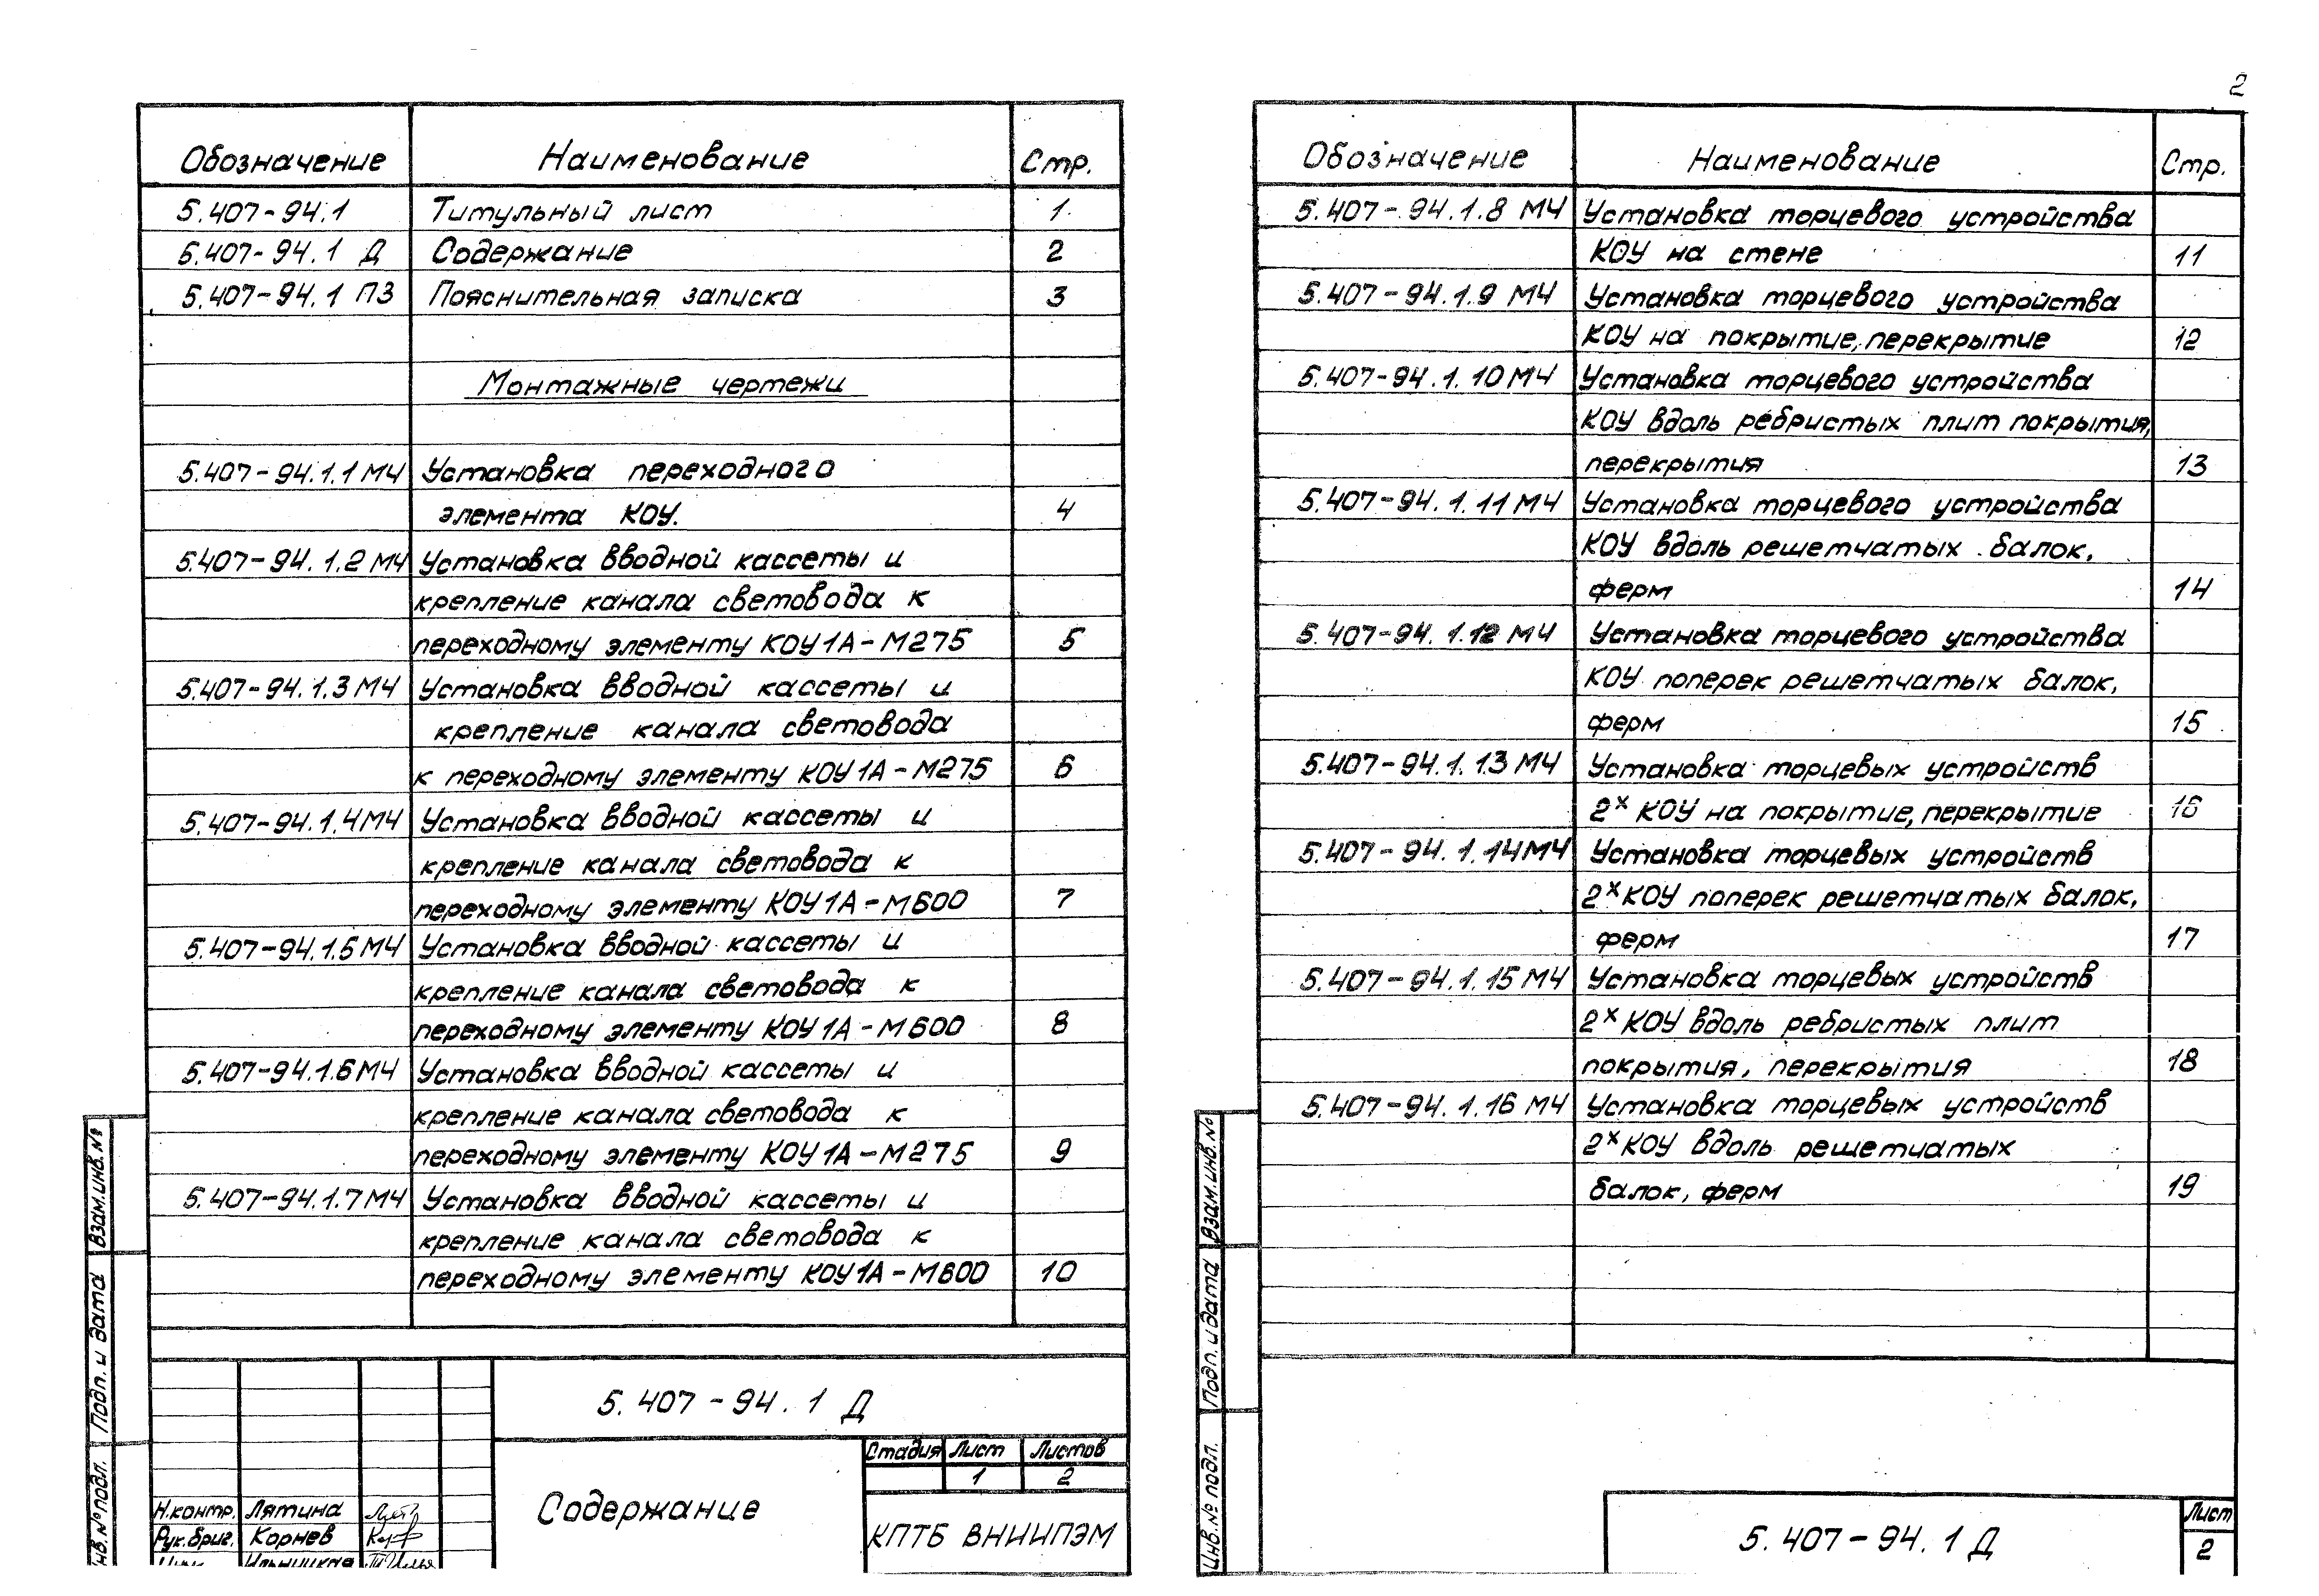 2
Обозначение Наименование Стр.
5.407-94.1 Титульный лист 1
5.407-94.1 Д Содержание 2
5.407-94.1 ПЗ Пояснительная записка 3
Монтажные чертежи
5.407-94.1.1 МЧ Установка переходного
элемента КОУ. 4
5.407-94.1.2 МЧ Установка вводной кассеты и
крепление канала световода к
переходному элементу КОУ1А-М275 5
5.407-94.1.3 МЧ Установка вводной кассеты и
крепление канала световода
к переходному элементу КОУ1А-М275 6
5.407-94.1.4 МЧ Установка вводной кассеты и
крепление канала световода к
переходному элементу КОУ1А-М600 7
5.407-94.1.5 МЧ Установка вводной кассеты и
крепление канала световода к
переходному элементу КОУ1А-М600 8
5.407-94.1.6 МЧ Установка вводной кассеты и
крепление канала световода к
переходному элементу КОУ1А-М275 9
5.407-94.1.7 МЧ Установка вводной кассеты и
крепление канала световода к
переходному элементу КОУ1А-М600 10
5.407-94.1 Д
Содержание
Стадия Лист Листов
1 2
КПТБ ВНИИПЭМ
Н.контр. Лятина
Рук.бриг. Корнев
Взам.инв.№
Подп. и дата
Инв.№ подл.
Обозначение Наименование Стр.
5.407-94.1.8 МЧ Установка торцевого устройства
КОУ на стене 11
5.407-94.1.9 МЧ Установка торцевого устройства
КОУ на покрытие, перекрытие 12
5.407-94.1.10 МЧ Установка торцевого устройства
КОУ вдоль ребристых плит покрытия,
перекрытия 13
5.407-94.1.11 МЧ Установка торцевого устройства
КОУ вдоль решетчатых балок,
ферм 14
5.407-94.1.12 МЧ Установка торцевого устройства
КОУ поперек решетчатых балок,
ферм 15
5.407-94.1.13 МЧ Установка торцевых устройств
2х КОУ на покрытие, перекрытие 16
5.407-94.1.14 МЧ Установка торцевых устройств
2х КОУ поперек решетчатых балок,
ферм 17
5.407-94.1.15 МЧ Установка торцевых устройств
2х КОУ вдоль ребристых плит
покрытия, перекрытия 18
5.407-94.1.16 МЧ Установка торцевых устройств
2х КОУ вдоль решетчатых
балок, ферм 19
Взам.инв.№
Подп. и дата
Инв.№ подл.
5.407-94.1 Д
Лист
2